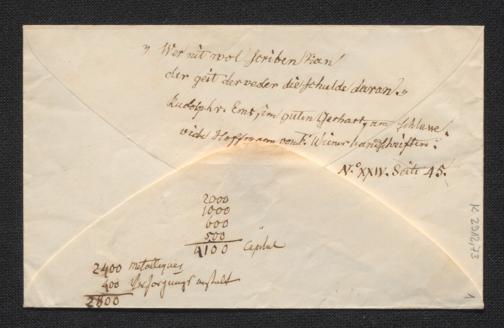 „ Wer nit wol scriben kan
der geit der veder die schulde daran.„
Rudolph v. Ems, im guten Gerhart, am Schlusse.
vide Hoffmann von F. Wiener handschriften.
N.º XXIV. Seite 45.
2000
1000
600
500
4100 Capital
2400 metalliques
400 Versorgungs anstalt
2800
1